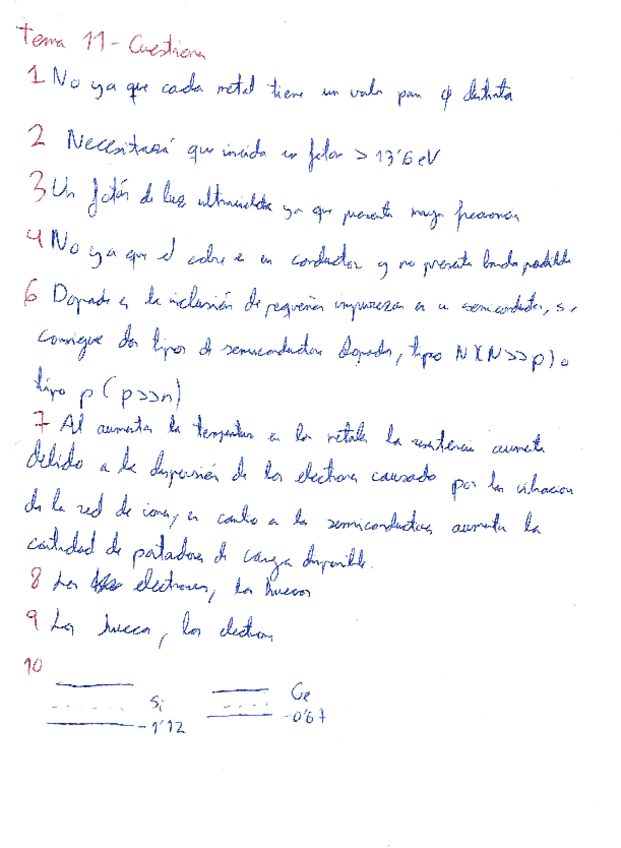 Tema 11 - Cuestiones
1 No ya que cada metal tiene un valor para φ distinto
2 Necesitará que incida un foton > 13'6 eV
3 Un fotón de luz ultravioleta ya que presenta mayor frecuencia
4 No ya que el cobre es un conductor y no presenta banda prohibida
6 Dopado es la inclusión de pequeñas impurezas en un semiconductor, se
consigue dos tipos de semiconductores dopados, tipo N (N>>p) o
tipo p (p>>n)
7 Al aumentar la temperatura en los metales la resistencia aumenta
debido a la dispersión de los electrones causado por las vibraciones
de la red de iones, en cuanto a los semiconductores aumenta la
cantidad de portadores de carga disponible.
8 Los electrones, los huecos
9 Los huecos, los electrones
10
Si
-1'12
Ge
-0'67